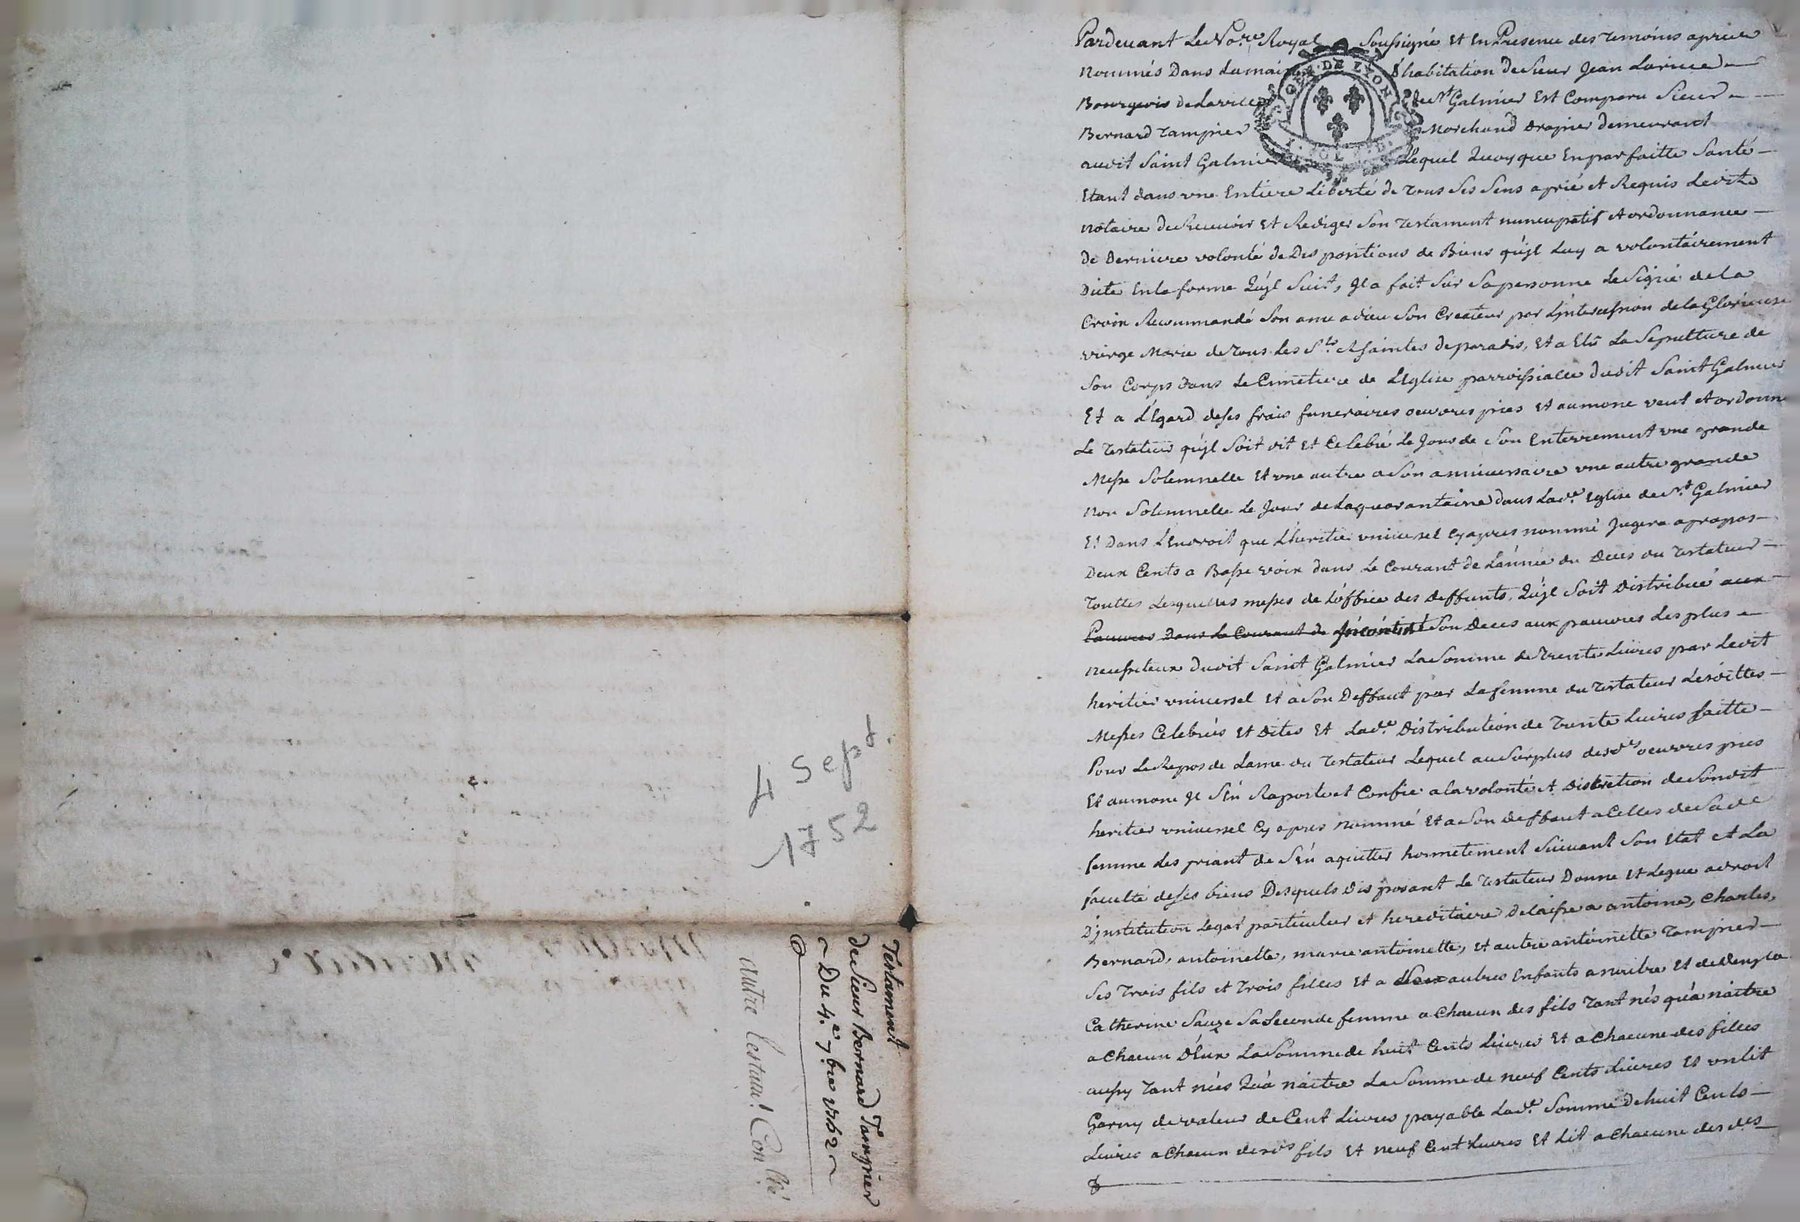 4 Sept
1752
Testament
du Sieur Bernard Tampier
Du 4.e 7.bre 1762
autre testam.t
Pardevant Le No.re Royal Soussigné Et En Presence des Temoins aprèz
Nommés Dans La maison D'habitation de Sieur Jean Larive
GEN. DE LYON
Bourgeois de La ville de St Galmier Est Comparu Sieur
Bernard Tampier Marchand Drapier demeurant
audit Saint Galmier Lequel Quoyque En parfaitte Santé
Etant dans une Entiere Liberté de Tous Ses Sens a prié et Requis Ledit
Notaire de Recevoir Et Rediger Son Testament nuncupatif et ordonnance
De Derniere volonté de Dispositions de Biens qu'jl Luy a volontairement
Dicté En la forme Qu'jl Suit, Jl a fait Sur Sa personne Le Signe de La
Croix Recommandé Son ame a dieu Son Createur par L'intercession de La Glorieuse
vierge Marie de Tous Les S.ts et Saintes de paradis, Et a Elû La Sepulture de
Son Corps Dans Le Cimetiere de L'Eglise parroissialle dudit Saint Galmier
Et a L'Egard de Ses frais funeraires oeuvres pies Et aumone veut et ordonne
Le Testateur qu'jl Soit dit Et Celebré Le Jour de Son Enterrement une grande
Messe Solemnelle Et une autre a Son anniversaire une autre grande
Non Solemnelle Le Jour de La quarantaine Dans La d.e Eglise de St Galmier
Et Dans L'Endroit que L'heritier universel Cy apres nommé Jugera a propos
Deux Cents a Basse voix dans Le Courant de L'année du Deces du Testateur
Touttes Lesquelles messes de L'office des Deffunts, Qu'jl Soit Distribué aux
Pauvres Dans Le Courant de Son Deces aux pauvres Les plus
necessiteux dudit Saint Galmier La Somme de Trente Livres par Ledit
heritier universel Et a Son Deffaut par La femme du Testateur Lesdittes
Messes Celebrées Et Dites Et La d.e Distribution de Trente Livres faitte
Pour Le Repos de L'ame du Testateur Lequel au Surplus desd.s oeuvres pies
Et aumone Jl S'En Raporte et Confie a la volonté et Discretion de Sondit
heritier universel Cy apres nommé Et a Son deffaut a Celles de Sa de
femme Les priant de S'En aquitter honnetement Suivant Son Etat et La
faculté de Ses biens Desquels Disposant Le Testateur Donne Et Legue a droit
D'jnstitution Legat particulier et hereditaire delaisse a antoine, Charles,
Bernard, antoinette, marie antoinette, et autre antoinette Tampier
Ses Trois fils et Trois filles Et a autres Enfants a naitre Et de
Catherine Sauze Sa Seconde femme a Chacun des fils Tant nés qu'a naitre
a Chacun D'Eux La Somme de huit Cents Livres Et a Chacune des filles
aussy Tant nées Qu'a naitre La Somme de neuf Cents Livres Et un lit
Garny de valeur de Cent Livres payable La d.e Somme de huit Cents
Livres a Chacun desd.s fils Et neuf Cent Livres Et Lit a Chacune des d.es